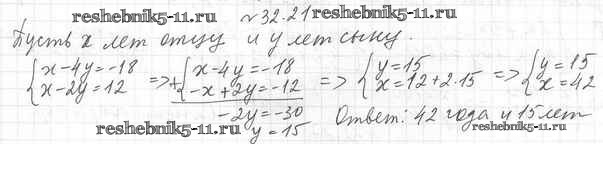 reshebnik5-11.ru №32.21 reshebnik5-11.ru
Пусть x лет отцу и y лет сыну.
{x-4y=-18 => +{x-4y=-18 => {y=15 => {y=15
{x-2y=12 {-x+2y=-12 {x=12+2·15 {x=42
-2y=-30
y=15
Ответ: 42 года и 15 лет
reshebnik5-11.ru reshebnik5-11.ru